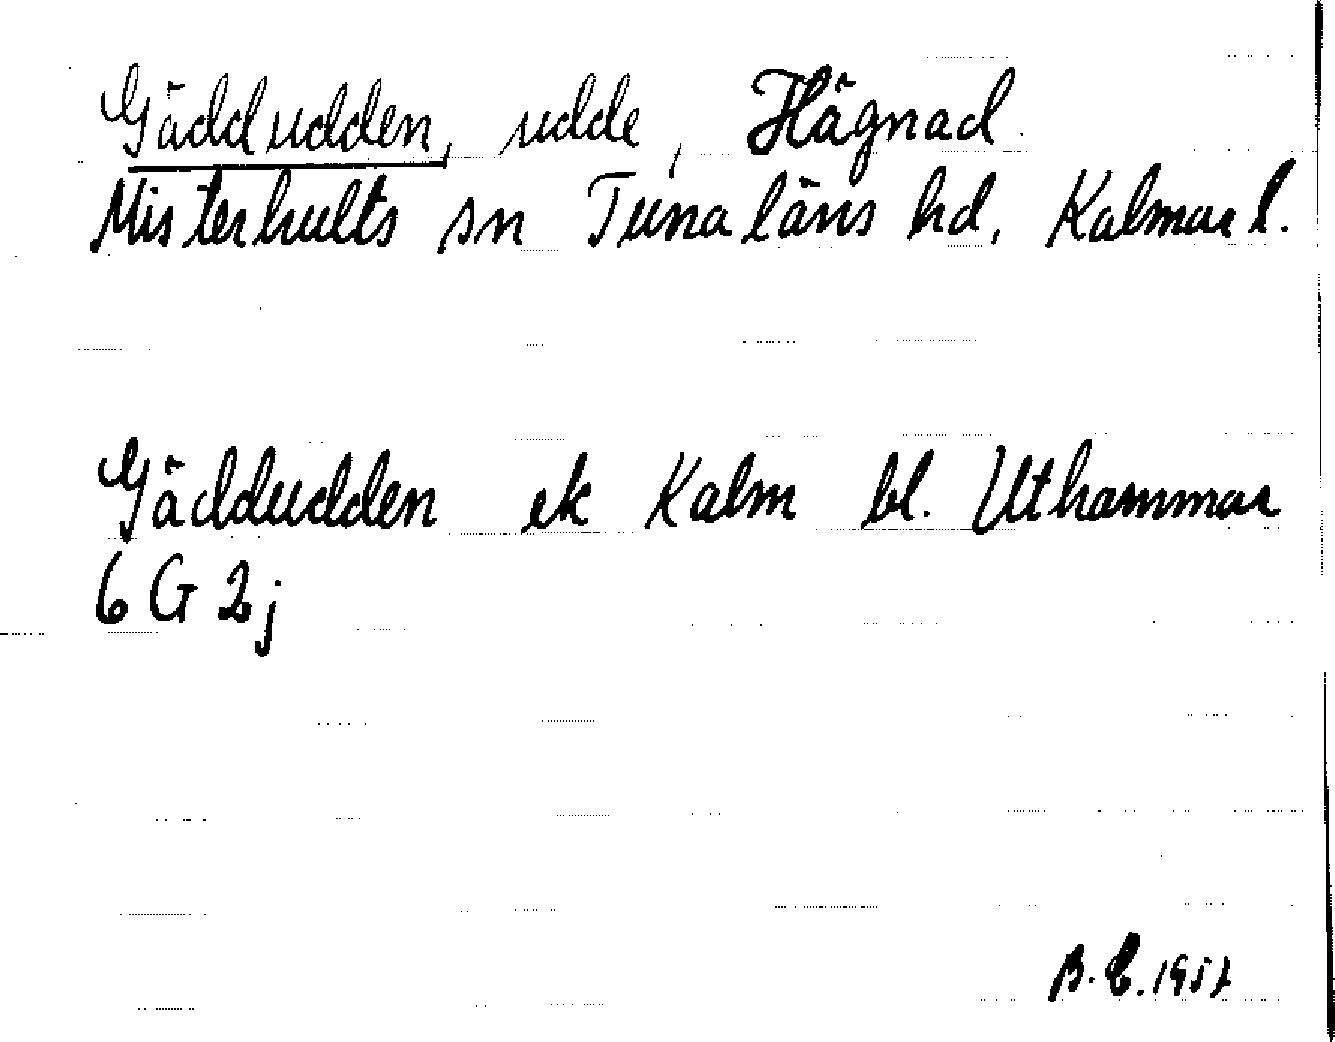 Gäddudden, udde, Hägnad
Misterhults sn Tunaläns hd, Kalmar l.
Gäddudden ek Kalm bl. Uthammar
6 G 2j